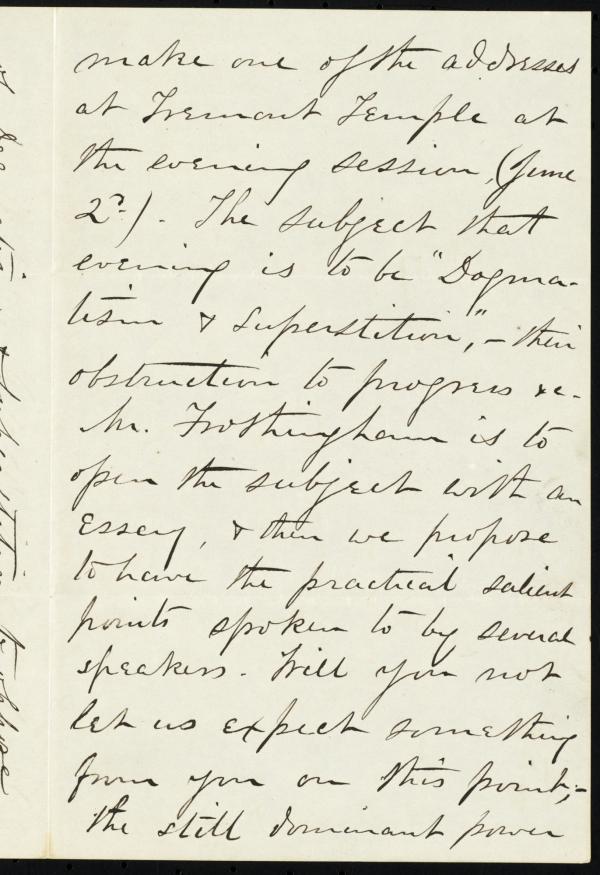 make one of the addresses
at Tremont Temple at
the evening session, (June
2d). The subject that
evening is to be "Dogma-
tism & Superstition," - their
obstruction to progress &c.
Mr. Frothingham is to
open the subject with an
Essay, & then we propose
to have the practical salient
points spoken to by several
speakers. Will you not
let us expect something
from you on this point; -
the still dominant power